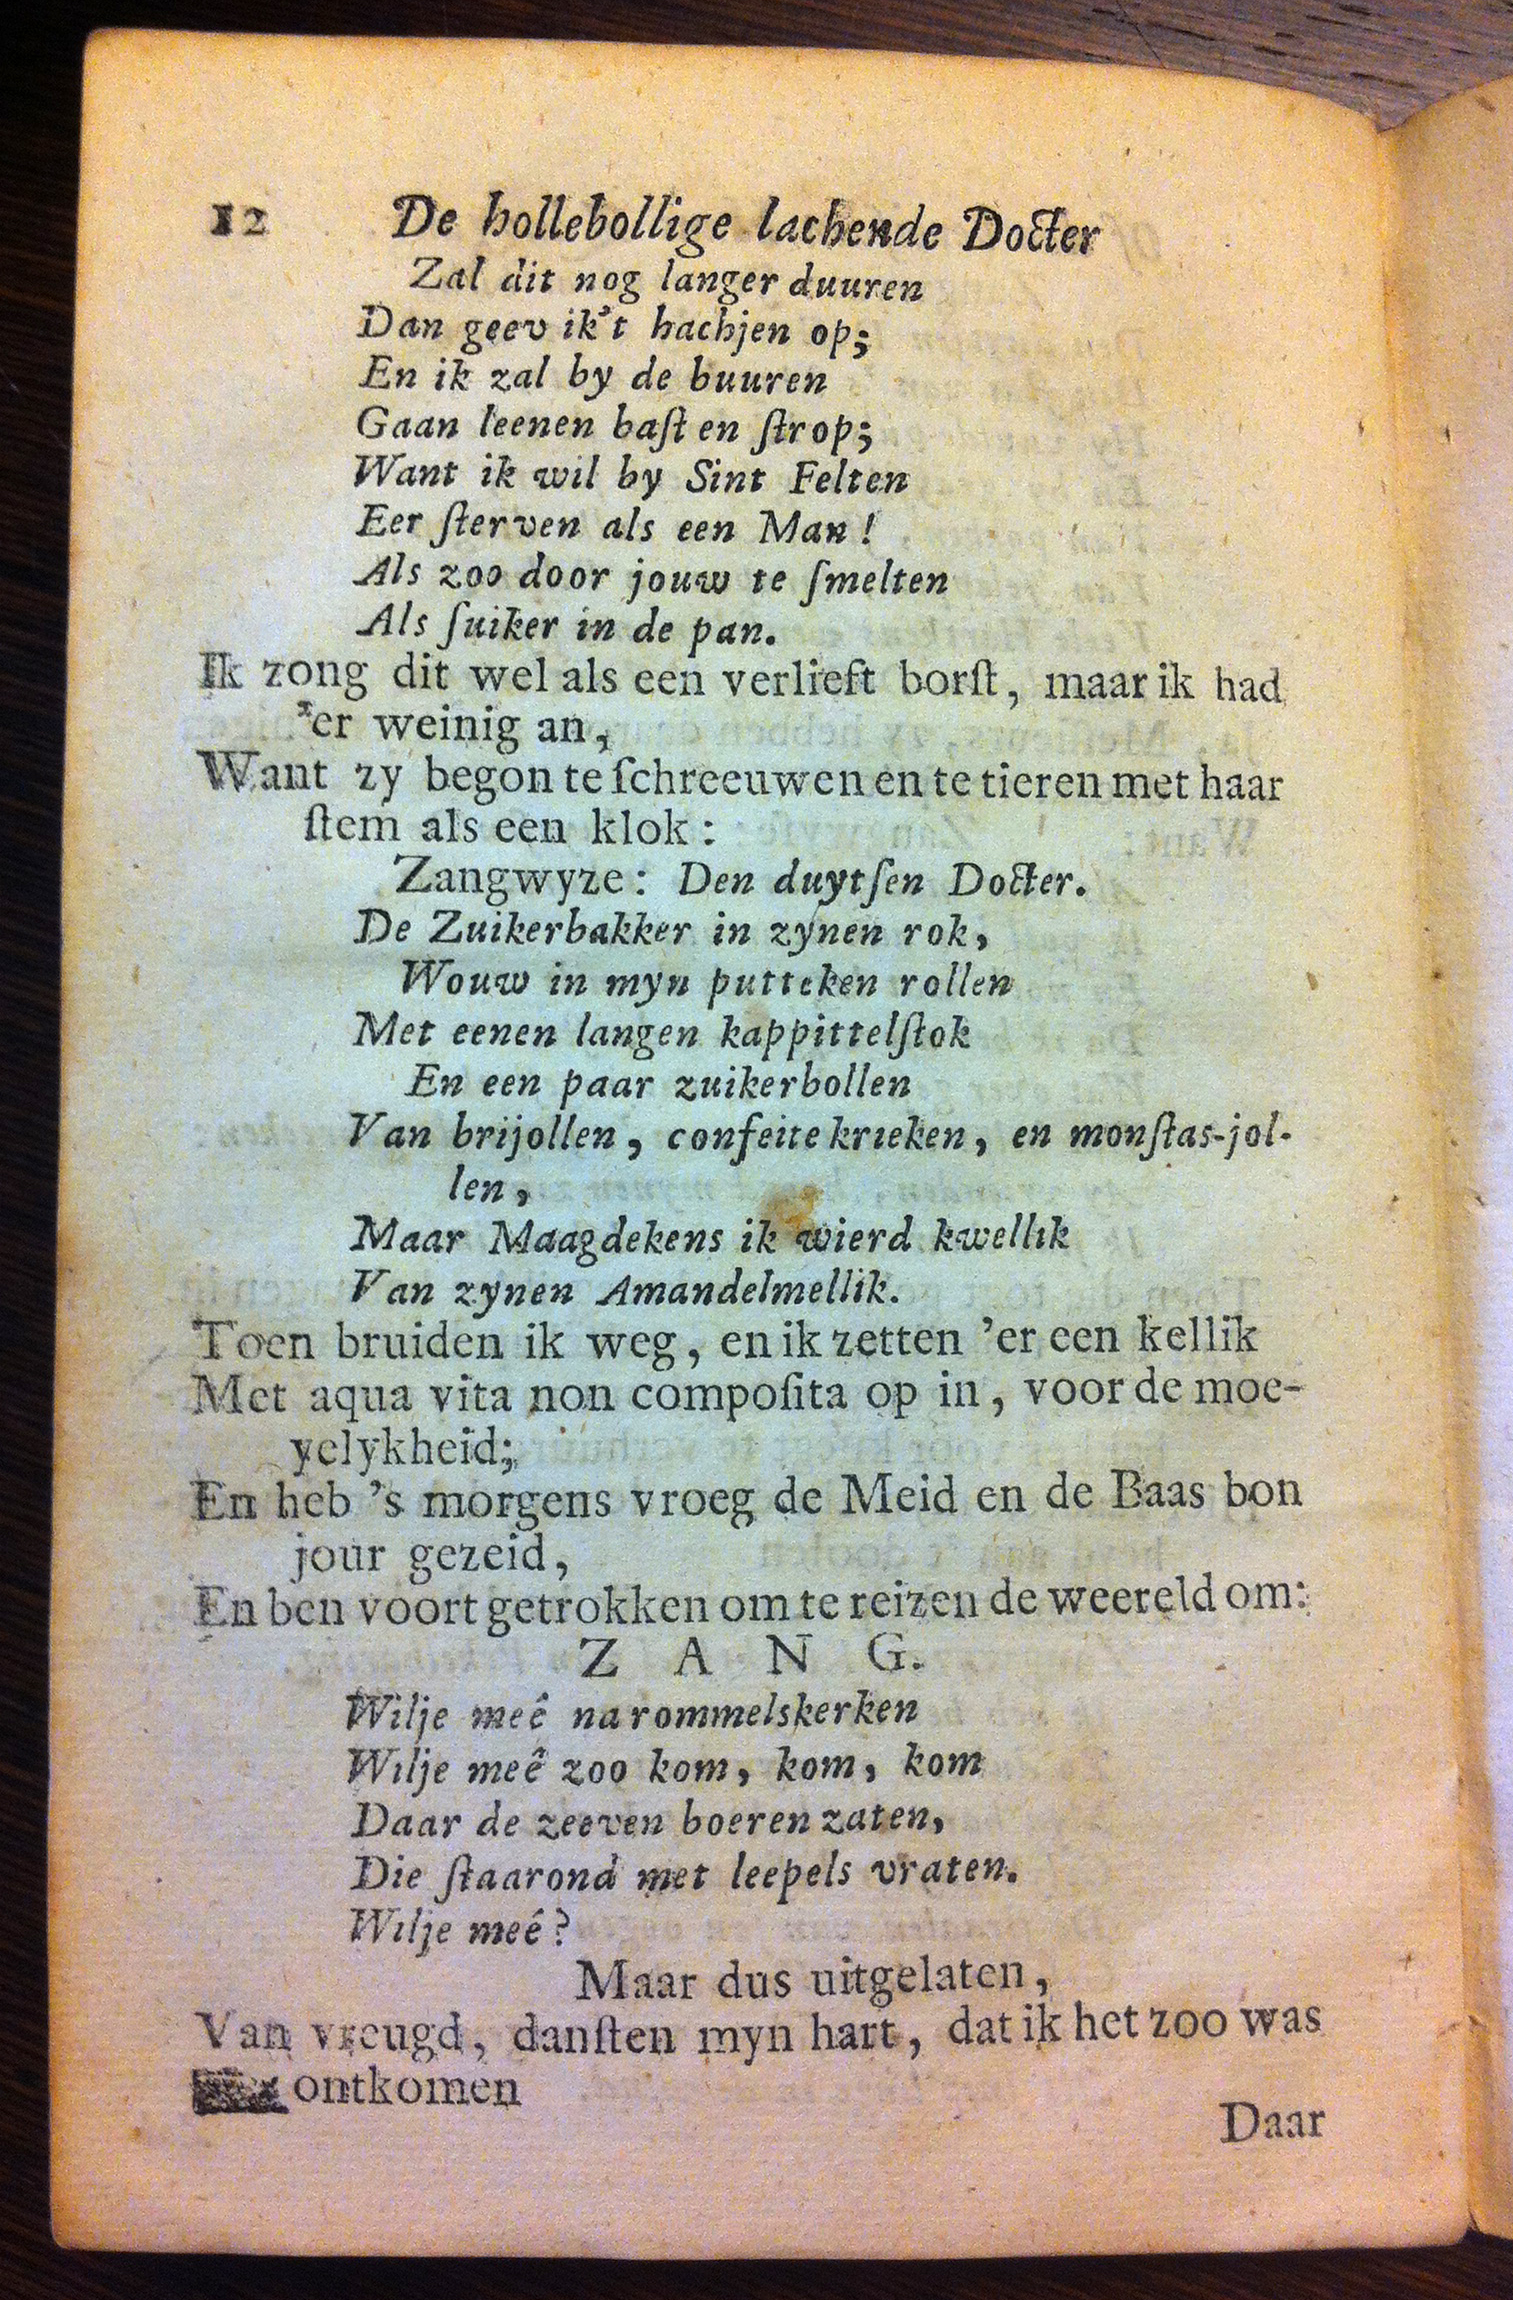 12 De hollebollige lachende Docter
Zal dit nog langer duuren
Dan geev ik't hachjen op;
En ik zal by de buuren
Gaan leenen baſt en ſtrop;
Want ik wil by Sint Felten
Eer ſterven als een Man!
Als zoo door jouw te ſmelten
Als ſuiker in de pan.
Ik zong dit wel als een verlieft borſt, maar ik had
'er weinig an,
Want zy begon te ſchreeuwen en te tieren met haar
ſtem als een klok:
Zangwyze: Den duytſen Docter.
De Zuikerbakker in zynen rok,
Wouw in myn putteken rollen
Met eenen langen kappittelſtok
En een paar zuikerbollen
Van brijollen, confeite krieken, en monſtas-jol-
len,
Maar Maagdekens ik wierd kwellik
Van zynen Amandelmellik.
Toen bruiden ik weg, en ik zetten 'er een kellik
Met aqua vita non compoſita op in, voor de moe-
yelykheid;
En heb 's morgens vroeg de Meid en de Baas bon
jour gezeid,
En ben voort getrokken om te reizen de weereld om:
Z A N G.
Wilje meê na rommelskerken
Wilje meê zoo kom, kom, kom
Daar de zeeven boeren zaten,
Die ſtaarond met leepels vraten.
Wilje meé?
Maar dus uitgelaten,
Van vreugd, danſten myn hart, dat ik het zoo was
ontkomen
Daar